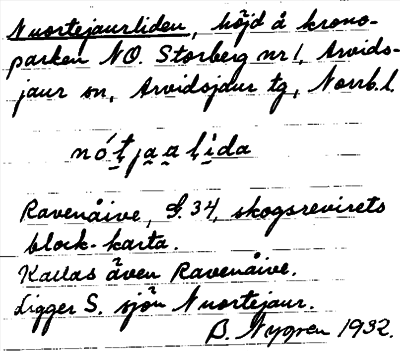 Nuortejaurliden, höjd å krono-
parken NO. Storberg nr 1, Arvids-
jaur sn, Arvidsjaur tg, Norrb. l.
nótjaalida
Ravenåive, S. 34, skogsrevirets
block-karta.
Kallas även Ravenåive.
Ligger S. sjön Nuortejaur.
B. Nygren 1932.